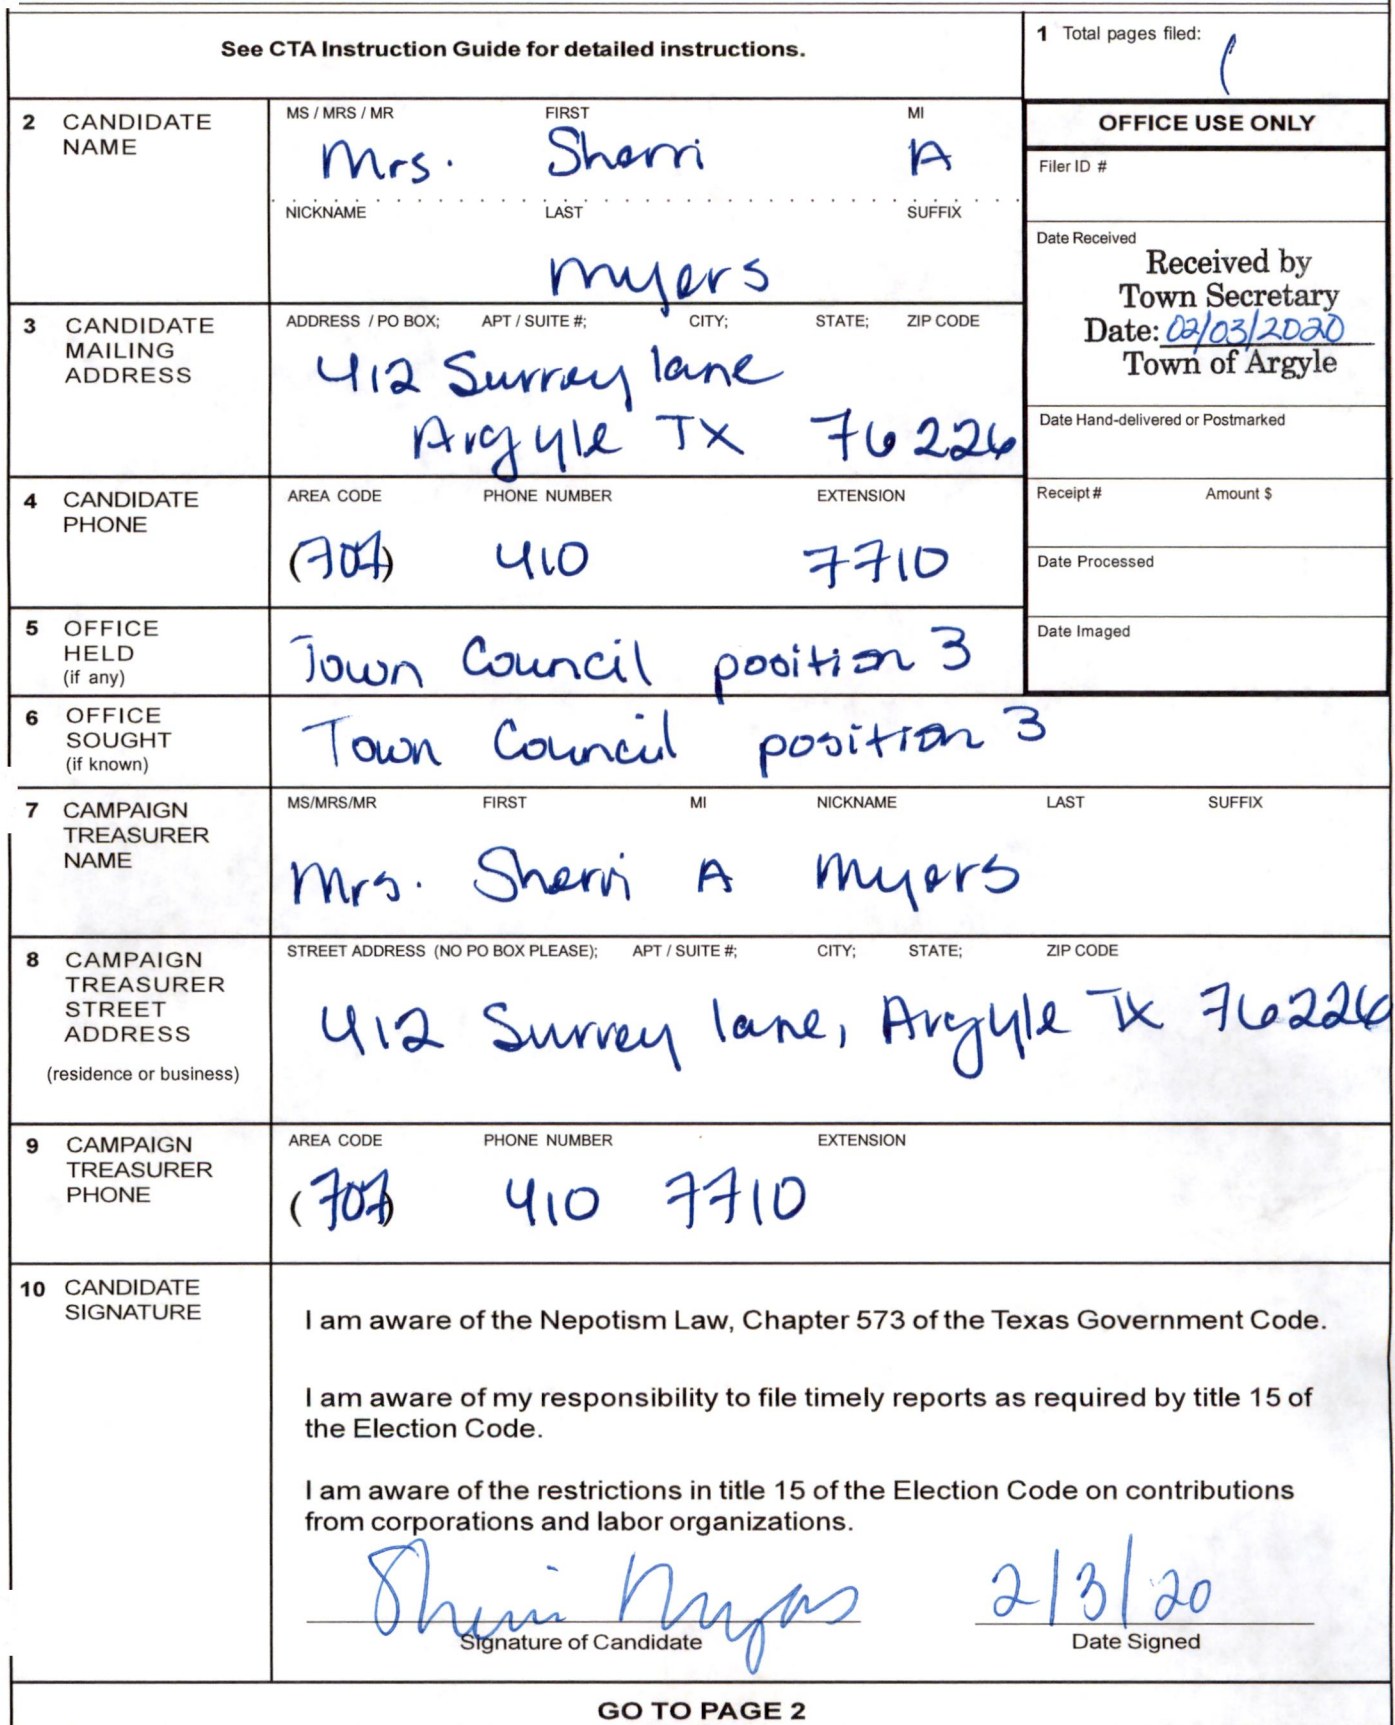 See CTA Instruction Guide for detailed instructions.
1 Total pages filed:
1
2 CANDIDATE NAME
MS / MRS / MR FIRST MI
Mrs. Sherri A
NICKNAME LAST SUFFIX
Myers
OFFICE USE ONLY
Filer ID #
Date Received
Received by
Town Secretary
Date: 02/03/2020
Town of Argyle
Date Hand-delivered or Postmarked
Receipt # Amount $
Date Processed
Date Imaged
3 CANDIDATE MAILING ADDRESS
ADDRESS / PO BOX; APT / SUITE #; CITY; STATE; ZIP CODE
412 Surrey lane
Argyle TX 76226
4 CANDIDATE PHONE
AREA CODE PHONE NUMBER EXTENSION
(707) 410 7710
5 OFFICE HELD (if any)
Town Council position 3
6 OFFICE SOUGHT (if known)
Town Council position 3
7 CAMPAIGN TREASURER NAME
MS/MRS/MR FIRST MI NICKNAME LAST SUFFIX
Mrs. Sherri A Myers
8 CAMPAIGN TREASURER STREET ADDRESS
(residence or business)
STREET ADDRESS (NO PO BOX PLEASE); APT / SUITE #; CITY; STATE; ZIP CODE
412 Surrey lane, Argyle TX 76226
9 CAMPAIGN TREASURER PHONE
AREA CODE PHONE NUMBER EXTENSION
(707) 410 7710
10 CANDIDATE SIGNATURE
I am aware of the Nepotism Law, Chapter 573 of the Texas Government Code.
I am aware of my responsibility to file timely reports as required by title 15 of
the Election Code.
I am aware of the restrictions in title 15 of the Election Code on contributions
from corporations and labor organizations.
Sherri Myers 2/3/20
Signature of Candidate Date Signed
GO TO PAGE 2